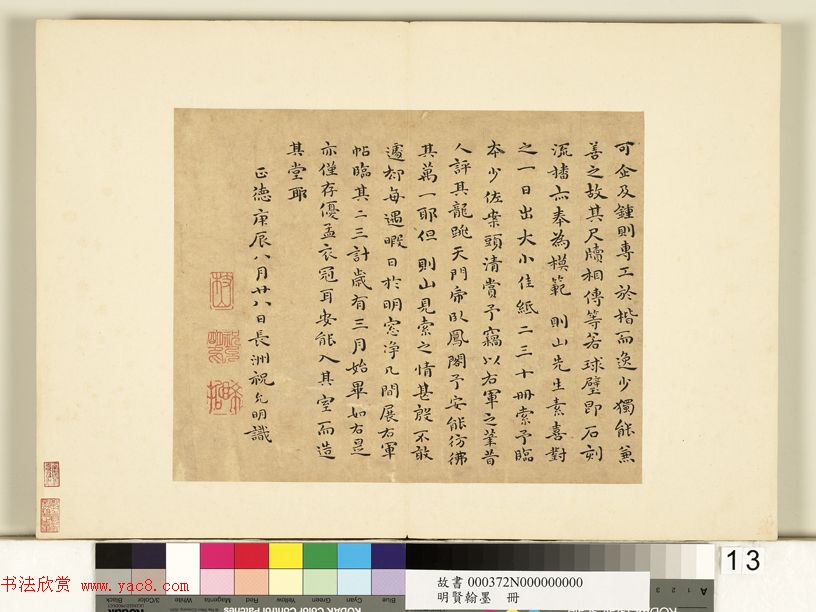 可企及鍾則專工於楷而逸少獨能兼
善之故其尺牘相傳等若球璧即石刻
流播亦奉為模範 則山先生素喜對
之一日出大小佳紙二三十冊索予臨
本少佐案頭清賞予竊以右軍之筆昔
人評其龍跳天門帝臥鳳閣予安能彷彿
其萬一耶但 則山見索之情甚殷不敢
遽却每遇暇日於明窓浄几間展右軍
帖臨其二三計歲有三月始畢如右是
亦僅存優孟衣冠耳安能入其室而造
其堂耶
正德庚辰八月廿八日長洲祝允明識
枝山
祝允明印
希哲
13
故書 000372N000000000
明賢翰墨 冊
书法欣赏 www.yac8.com
Black
3/Color
White
Magenta
Red
Yellow
Green
Cyan
Blue
KODAK Color Control Patches
A
1
2
3